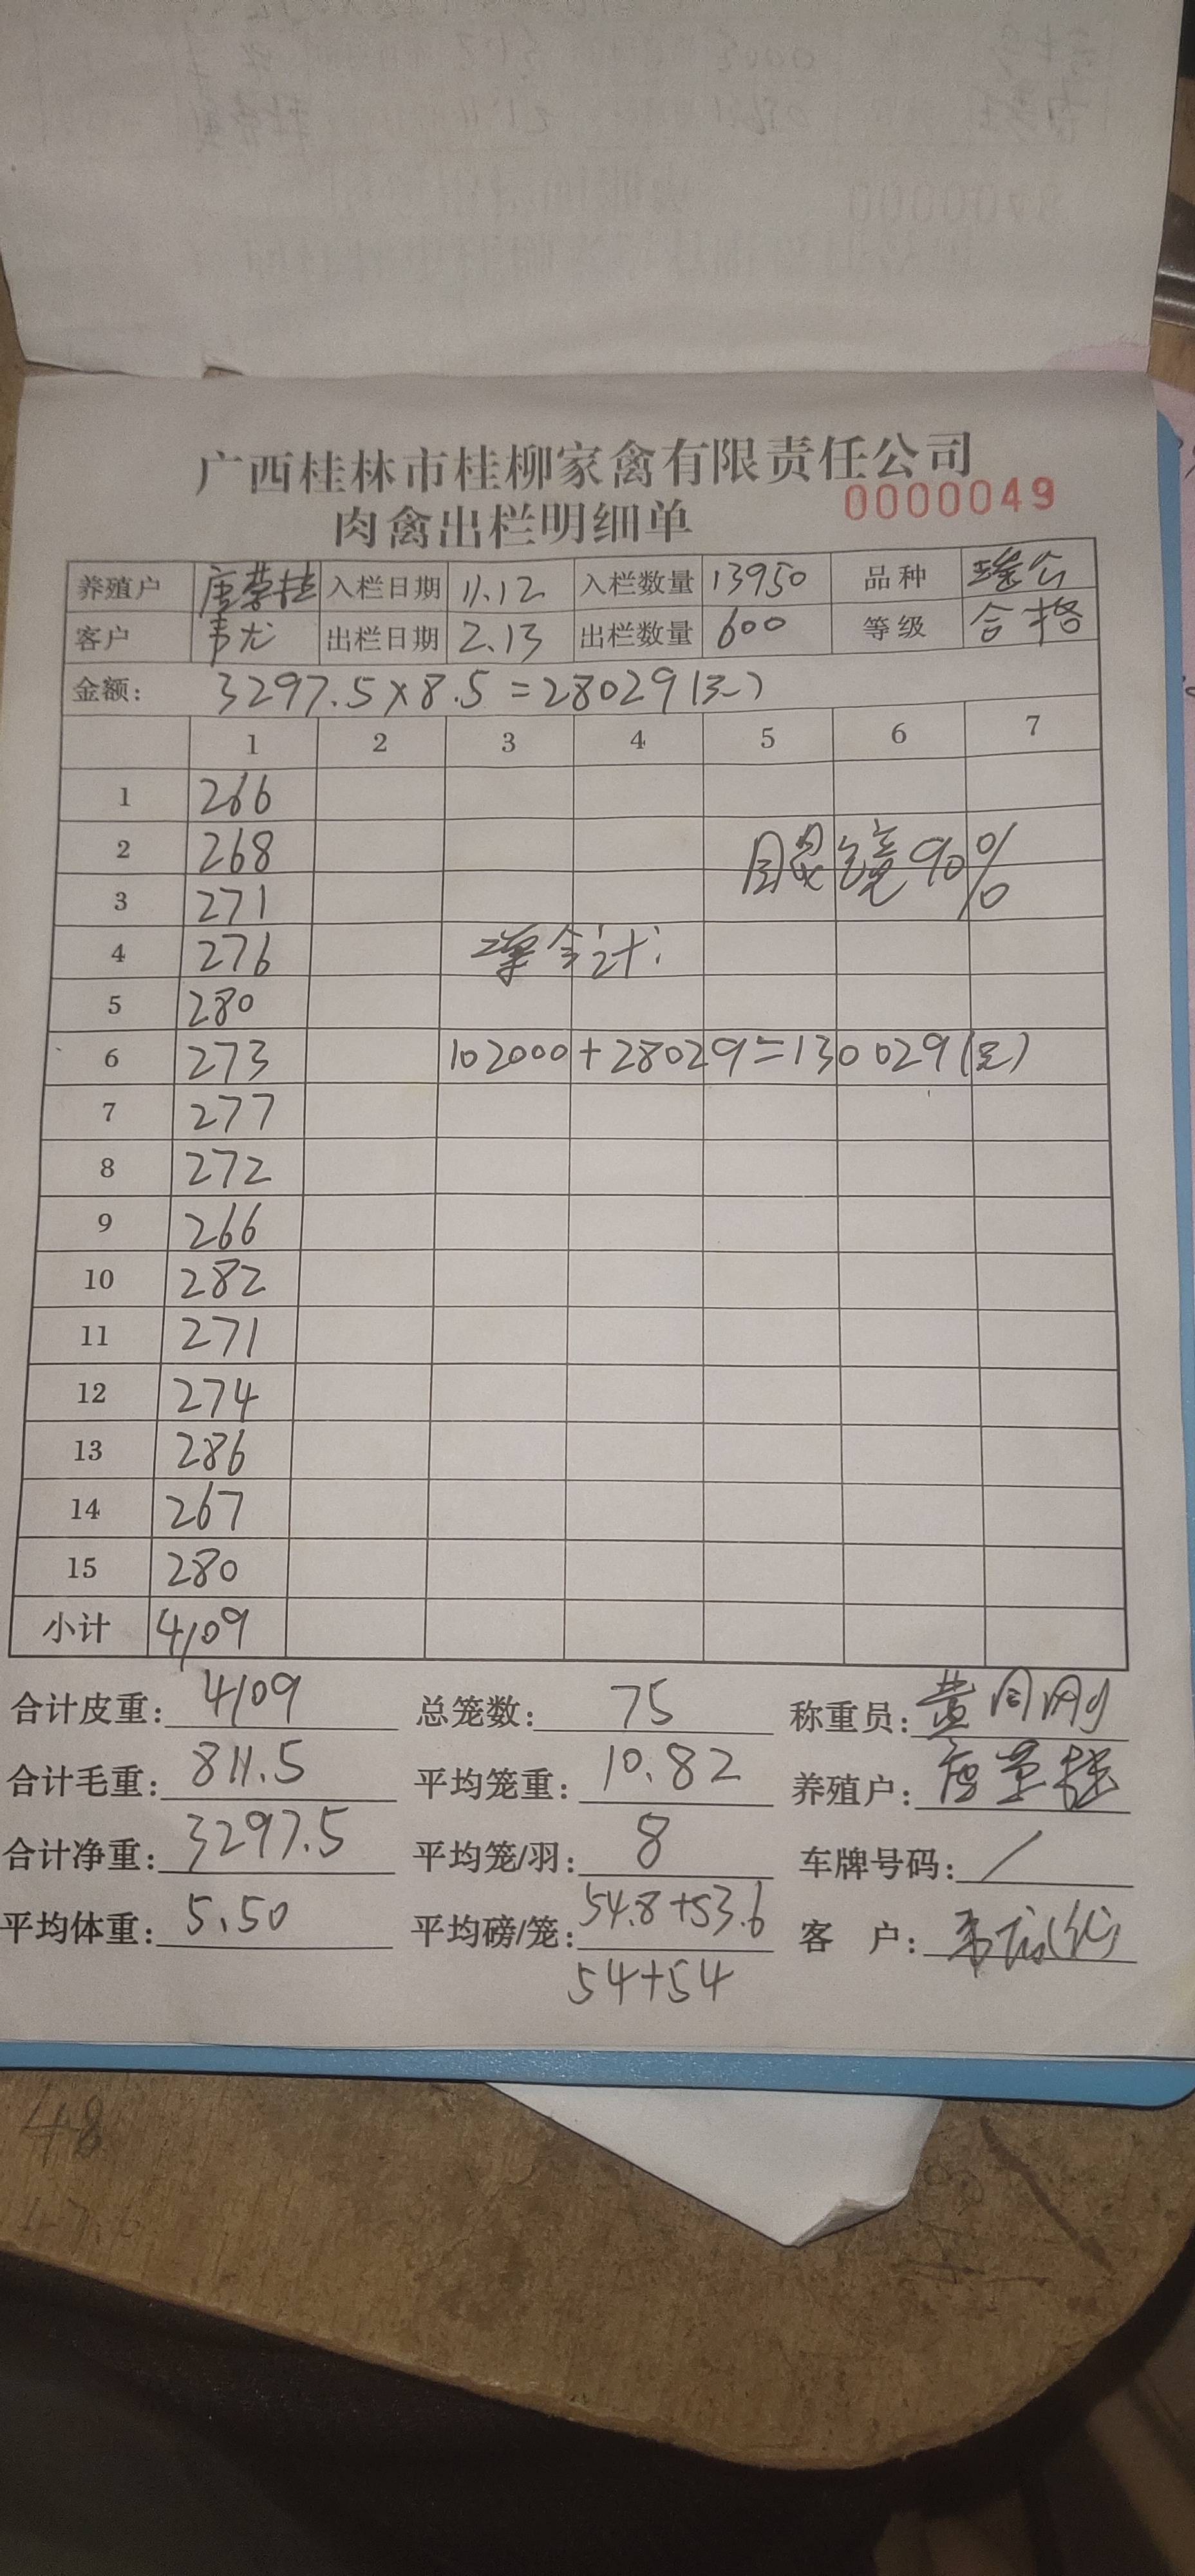 广西桂林市桂柳家禽有限责任公司
肉禽出栏明细单 0000049
养殖户 唐 入栏日期 11.12 入栏数量 13950 品种 瑶公
客户 韦龙 出栏日期 2.13 出栏数量 600 等级 合格
金额: 3297.5×8.5=28029(元)
1 2 3 4 5 6 7
1 266
2 268 眼镜90%
3 271
4 276 合计:
5 280
6 273 102000+28029=130029(元)
7 277
8 272
9 266
10 282
11 271
12 274
13 286
14 267
15 280
小计 4109
合计皮重: 4109 总笼数: 75 称重员: 黄同刚
合计毛重: 811.5 平均笼重: 10.82 养殖户: 唐
合计净重: 3297.5 平均笼/羽: 8 车牌号码: /
平均体重: 5.50 平均磅/笼: 54.8+53.6 客 户: 韦龙(代)
54+54
48